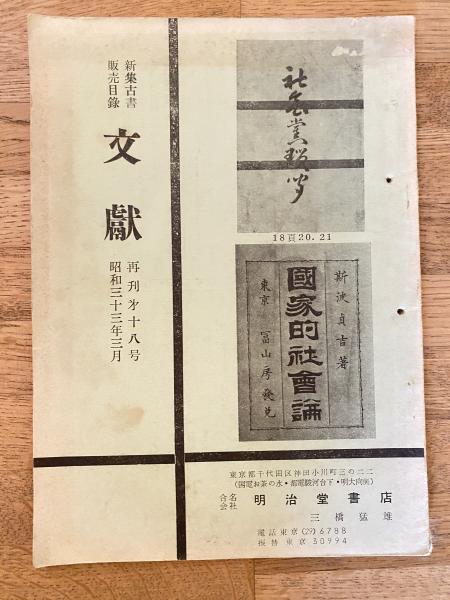 新集古書
販売目録
文獻
再刊才十八号
昭和三十三年三月
社会党瑣聞
18頁20.21
斯波貞吉著
國家的社會論
東京 冨山房發兌
東京都千代田区神田小川町三の二二
(国電お茶の水・都電駿河台下・明大向側)
合名会社 明治堂書店
三橋猛雄
電話東京(29)6788
振替東京30994